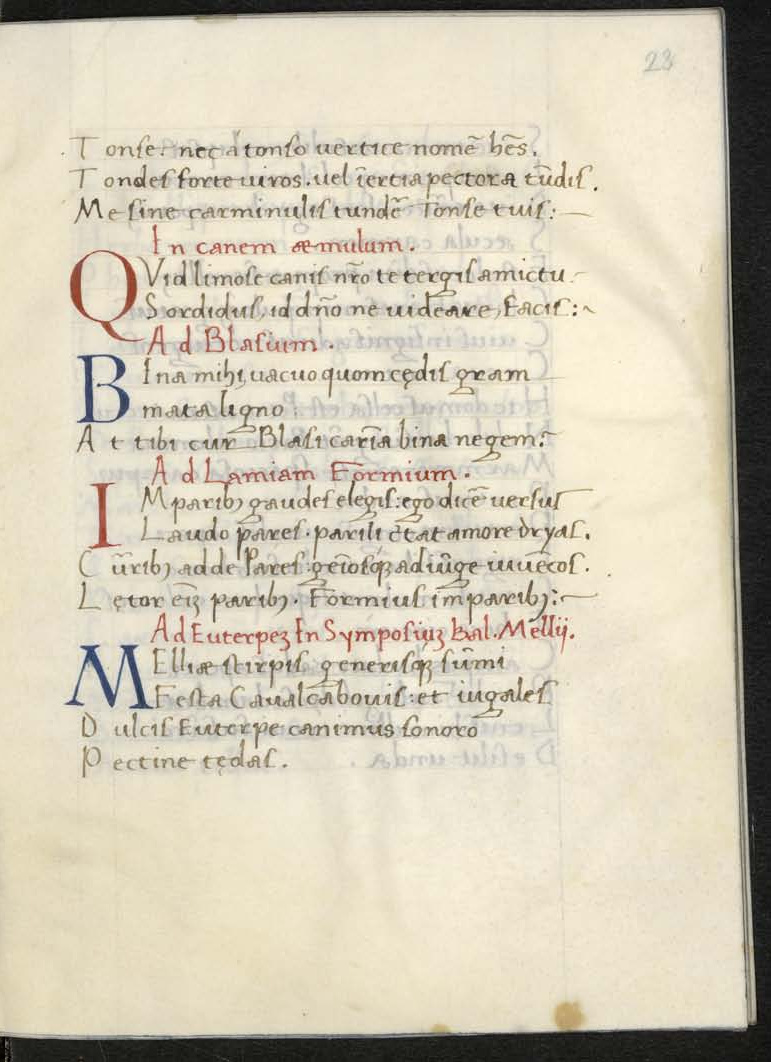 23
Tonse: nec á tonso vertice nomē hēs.
Tondes forte viros. vel īertia pectora tūdis.
Me sine carminulis tundē Tonse tuis:
In canem æmulum.
QVid limose canis nr̄o te tergis amictu.
Sordidus, id dn̄o ne videare, facis:~
Ad Blasium.
BIna mihi, vacuo quom cędis gram
mata ligno:
At tibi cur Blasi cariā bina negem:
Ad Lamiam Formium.
IMparibꝫ gaudes elegis: ego dicē versus
Laudo pares. parili ētat amore dryas.
Cūribꝫ adde Pares: geīosqꝫ adiūge iuuēcos.
Lętor eiꝫ paribꝫ. Formius imparibꝫ:
Ad Euterpeꝫ In Symposiuꝫ Bal. Mellij.
MElliæ stirpis generisqꝫ sūmi
Festa Caualcabouis: et iugales
Dulcis Euterpe canimus sonoro
Pectine tędas.